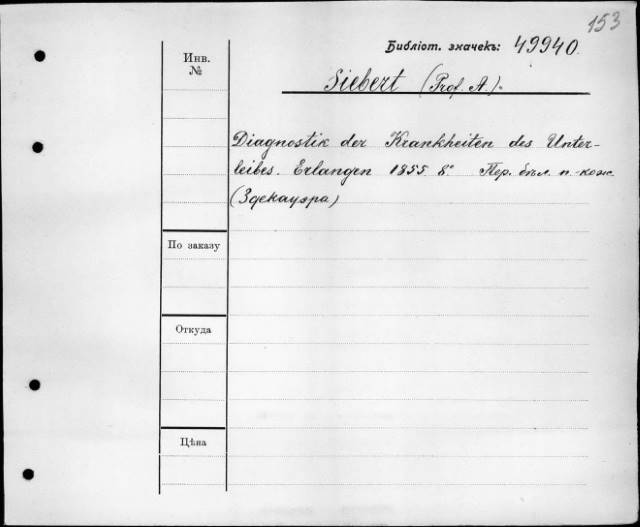 153
Библіот. значекъ: 49940.
Инв.
№
Siebert (Prof. A.).
Diagnostik der Krankheiten des Unter-
leibes. Erlangen 1855 8° Пер. бѣл. п.-кож.
(Здекауэра)
По заказу
Откуда
Цѣна